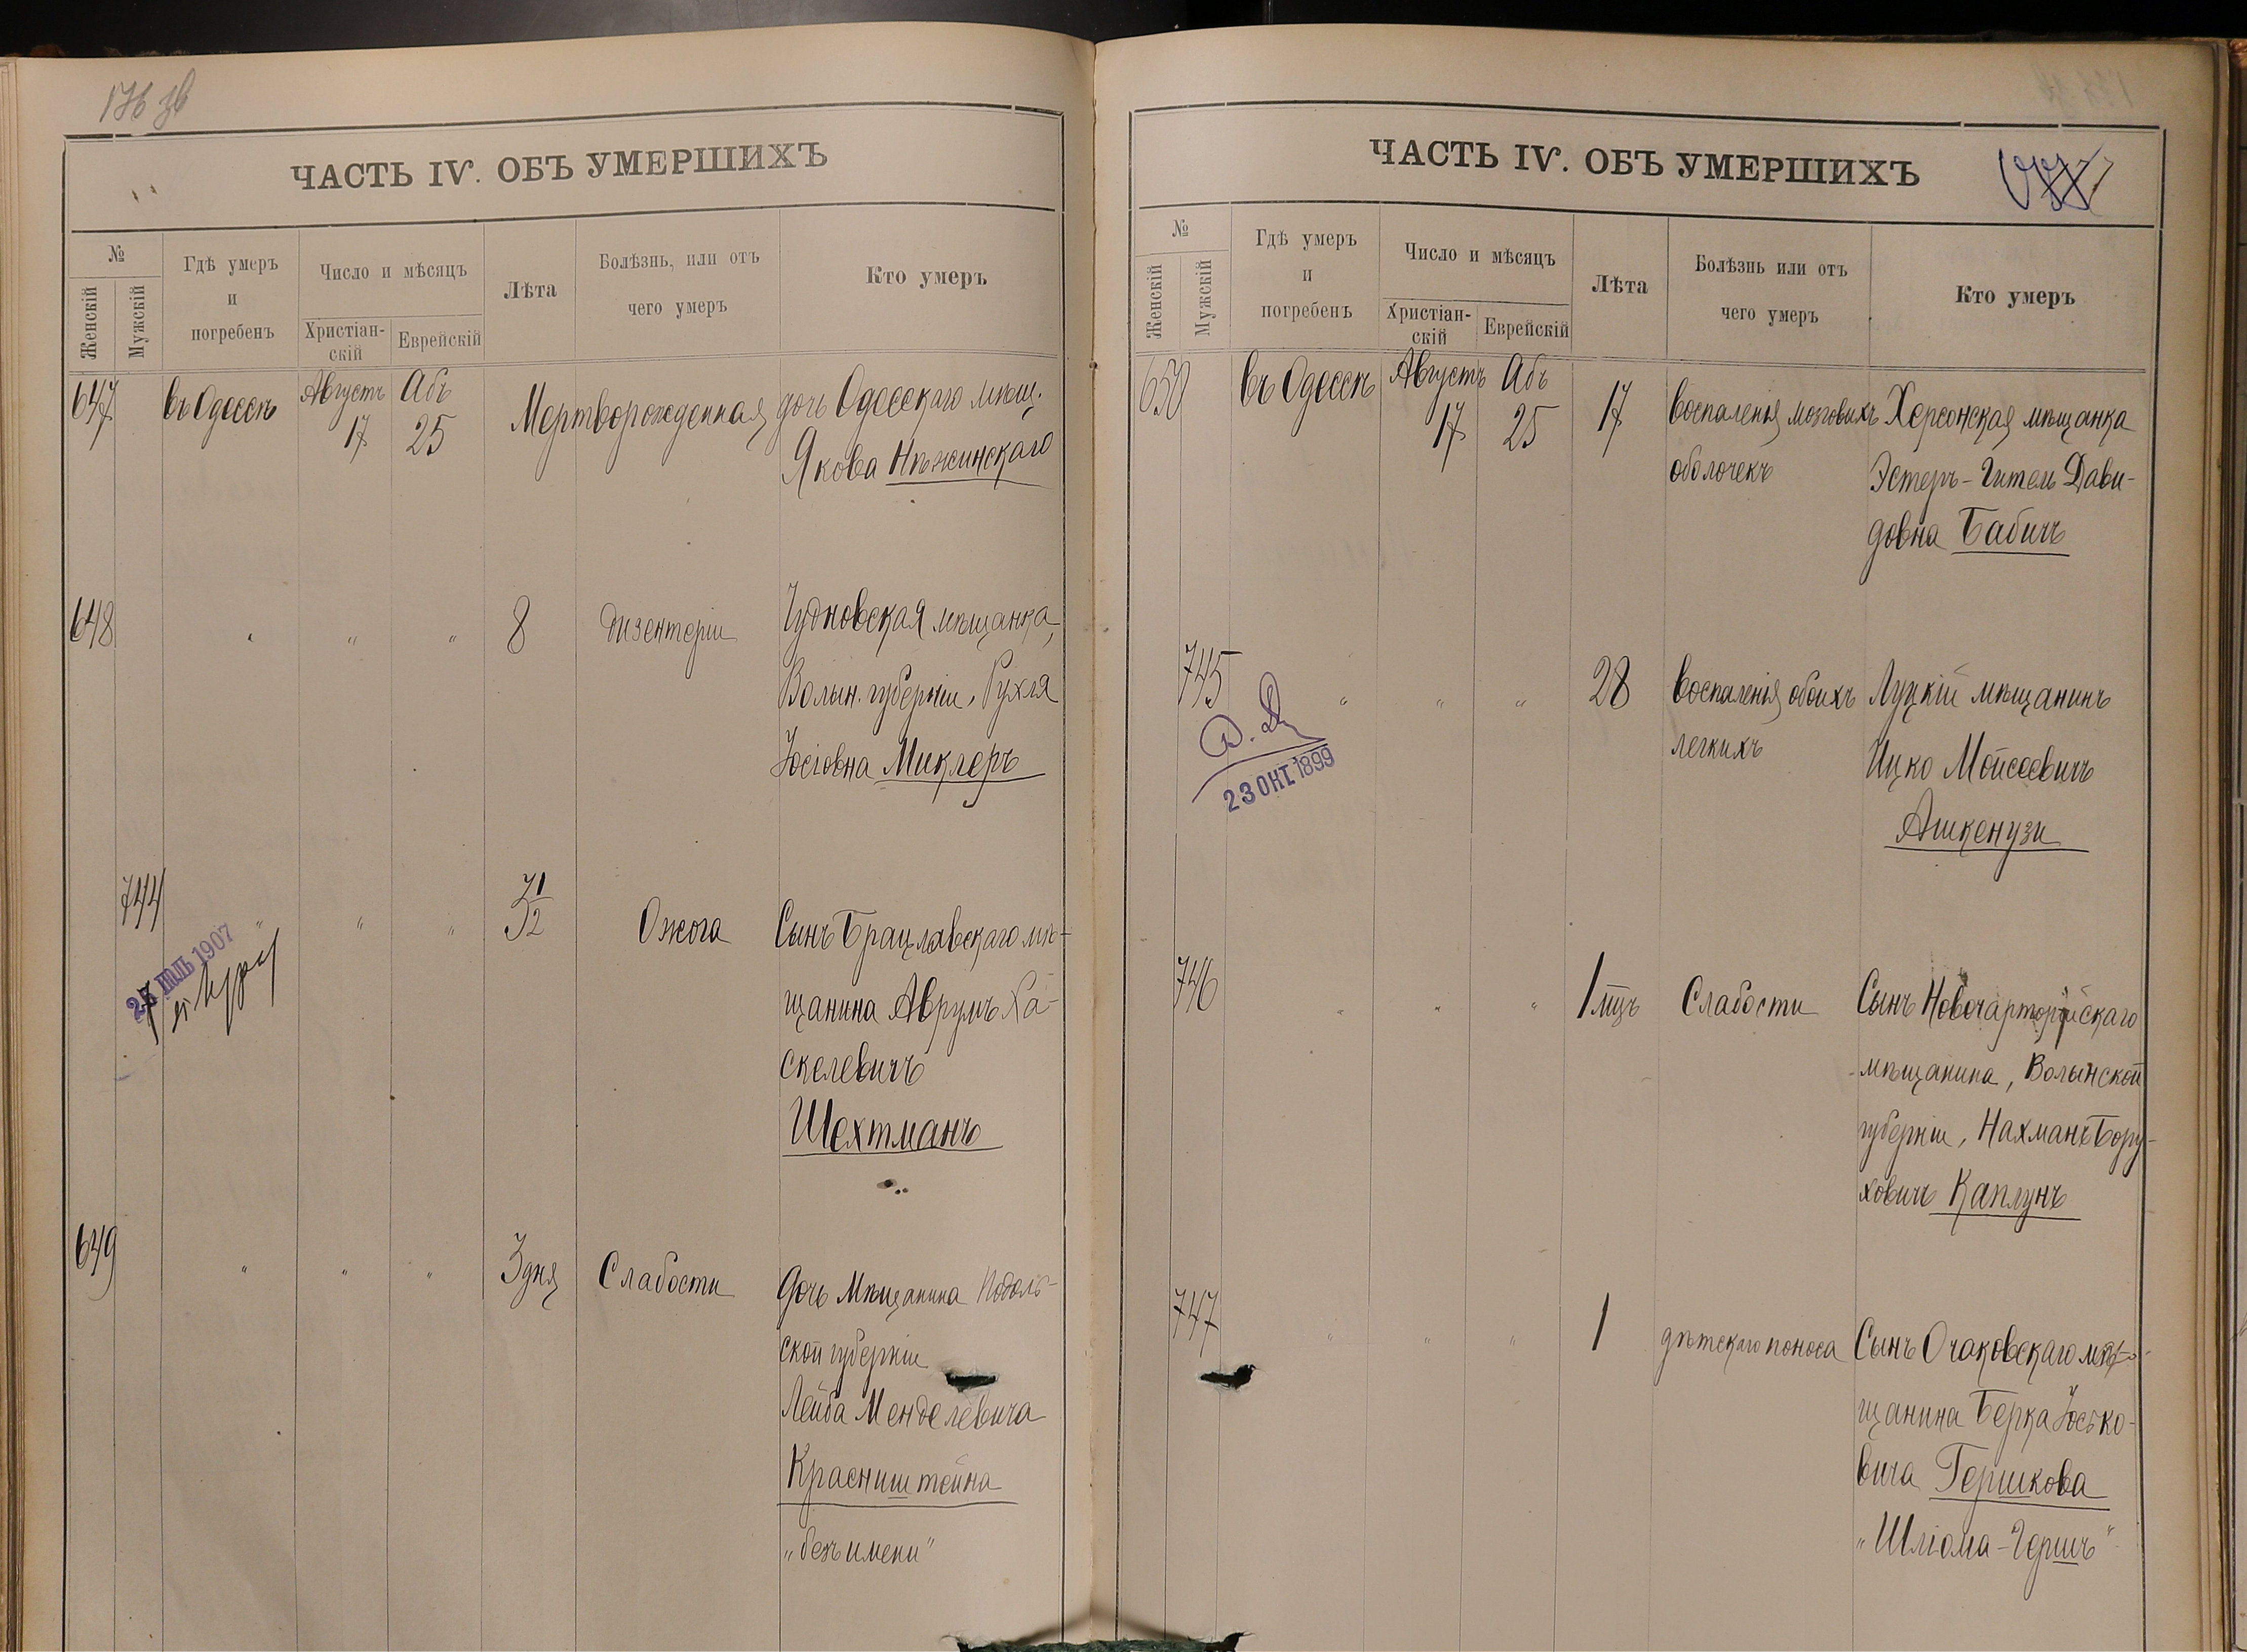 176 зв
ЧАСТЬ IV. ОБЪ УМЕРШИХЪ
№
Женскій
Мужскій
Гдѣ умеръ
и
погребенъ
Число и мѣсяцъ
Христіан-
скій
Еврейскій
Лѣта
Болѣзнь, или отъ
чего умеръ
Кто умеръ
647 въ Одессѣ Августъ Абъ Мертворожденная дочь Одесскаго мѣщ.
17 25 Якова Нѣжинскаго
648 " " " 8 дизентеріи Чудновская мѣщанка,
Волын. губерніи, Рухля
Іосіовна Миклеръ
744 " " " 3 1/2 Ожога Сынъ Брацлавскаго мѣ-
щанина Аврумъ Ха-
скелевичъ
Шехтманъ
ІЮЛЬ 1907
649 " " " 3 дня Слабости Дочь Мѣщанина Подоль-
ской губерніи
Лейба Менделевича
Красништейна
"безъ имени"
ЧАСТЬ IV. ОБЪ УМЕРШИХЪ
№
Женскій
Мужскій
Гдѣ умеръ
и
погребенъ
Число и мѣсяцъ
Христіан-
скій
Еврейскій
Лѣта
Болѣзнь или отъ
чего умеръ
Кто умеръ
650 въ Одессѣ Августъ Абъ 17 воспаленія мозговыхъ Херсонская мѣщанка
17 25 оболочекъ Эстеръ-Гитель Дави-
довна Бабичъ
745 " " " 28 воспаленія обоихъ Луцкій мѣщанинъ
легкихъ Ицко Мойсеевичъ
Ашкенузи
23 ОКТ 1899
746 " " " 1 мцъ Слабости Сынъ Новочарторійскаго
мѣщанина, Волынской
губерніи, Нахманъ Бору-
ховичъ Каплунъ
747 " " " 1 дѣтскаго поноса Сынъ Очаковскаго мѣ-
щанина Берка Іосько-
вича Гершкова
"Шліома-Гершъ"